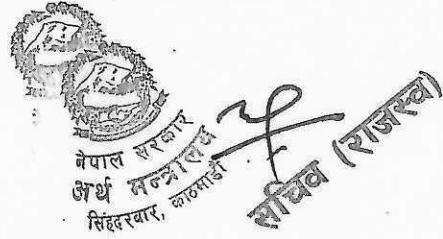 नेपाल सरकार
अर्थ मन्त्रालय
सिंहदरबार, काठमाडौं
सचिव (राजस्व)